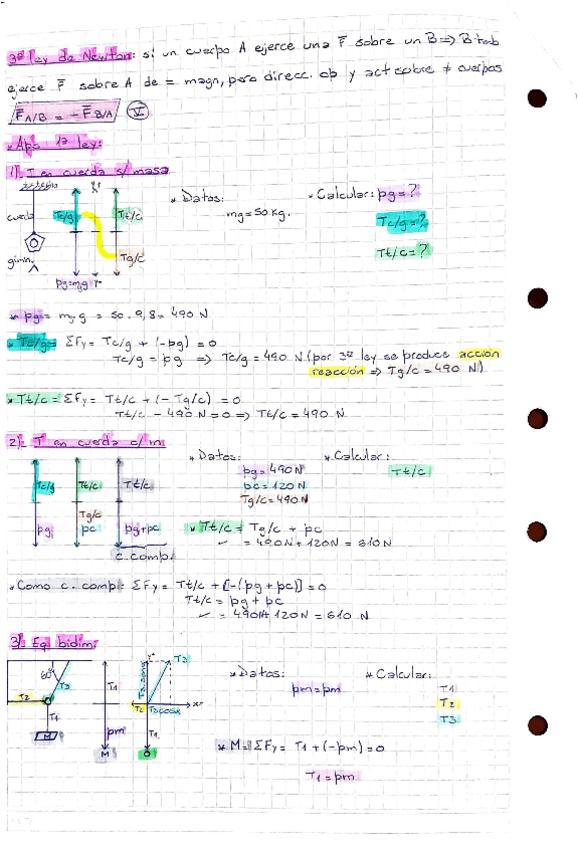 3ª ley de Newton: si un cuerpo A ejerce una F̄ sobre un B ⇒ B tmb
ejerce F̄ sobre A de = magn, pero direcc. op y act sobre ≠ cuerpos
F̄A/B = -F̄B/A (V)
* Apo 1ª ley:
1) T en cuerda s/masa
techo
cuerda
gimn.
Tc/g
Tt/c
Tg/c
pg=m.g
* Datos:
mg = 50 kg.
* Calcular: pg = ?
Tc/g = ?
Tt/c = ?
* pg = m.g = 50 . 9,8 = 490 N
* Tc/g = ΣFy = Tc/g + (-pg) = 0
Tc/g = pg ⇒ Tc/g = 490 N (por 3ª ley se produce acción
reacción ⇒ Tg/c = 490 N)
* Tt/c = ΣFy = Tt/c + (-Tg/c) = 0
Tt/c - 490 N = 0 ⇒ Tt/c = 490 N
2) T en cuerda c/m:
Tc/g
Tt/c
Tt/c
Tg/c
pg
pc
pg+pc
c.comp.
* Datos:
pg = 490 N
pc = 120 N
Tg/c = 490 N
* Calcular:
Tt/c
* Tt/c = Tg/c + pc
= 490 N + 120 N = 610 N
* Como c. comp: ΣFy = Tt/c + [-(pg + pc)] = 0
Tt/c = pg + pc
= 490 N + 120 N = 610 N
3) Eq bidim:
60°
T3
T2
T1
M
T1
pm
M
T3
T3 senα
T2
T3 cosα
T1
O
* Datos:
pm = pm
* Calcular:
T1
T2
T3
* M = ΣFy = T1 + (-pm) = 0
T1 = pm